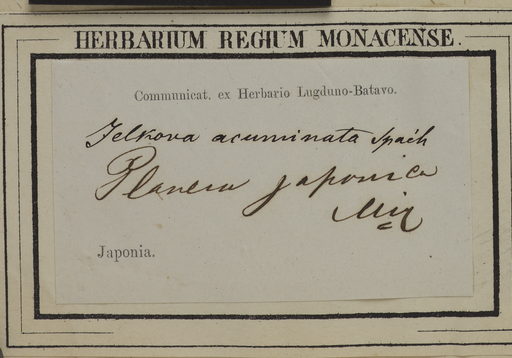 HERBARIUM REGIUM MONACENSE.
Communicat. ex Herbario Lugduno-Batavo.
Zelkova acuminata Spach
Planera japonica
Miq
Japonia.